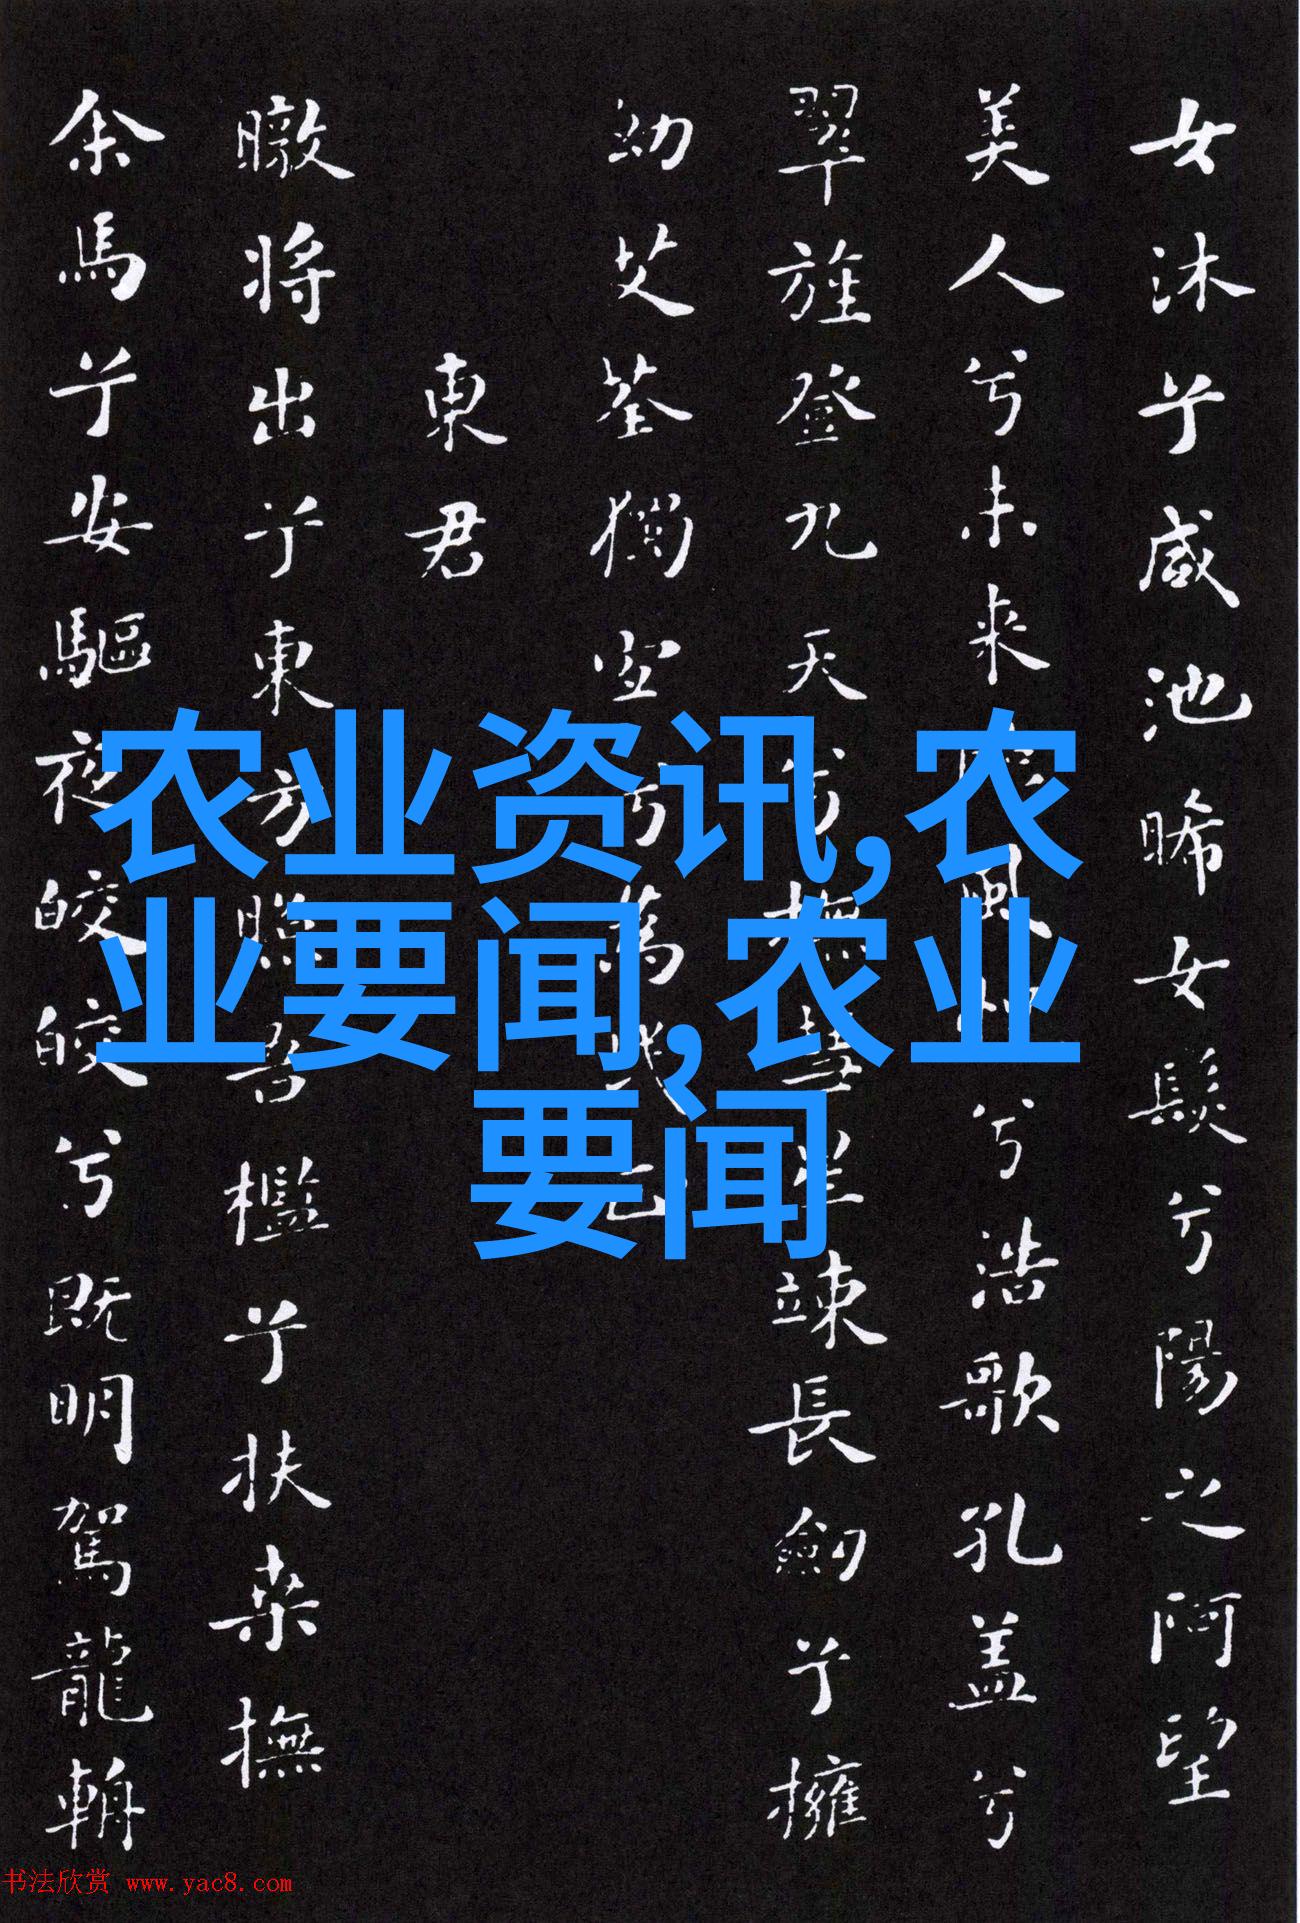 女沐兮咸池晞女髮兮陽之阿望
美人兮未来 風 兮浩歌孔盖兮
翠旌登九天兮撫彗星竦長劍兮擁
幼艾荃獨宜兮為民正
東君
暾将出兮東方照吾檻兮扶桒撫
余馬兮安驅夜皎皎兮既明駕龍輈
农业资讯,农
业要闻,农业
要闻
书法欣赏 www.yac8.com